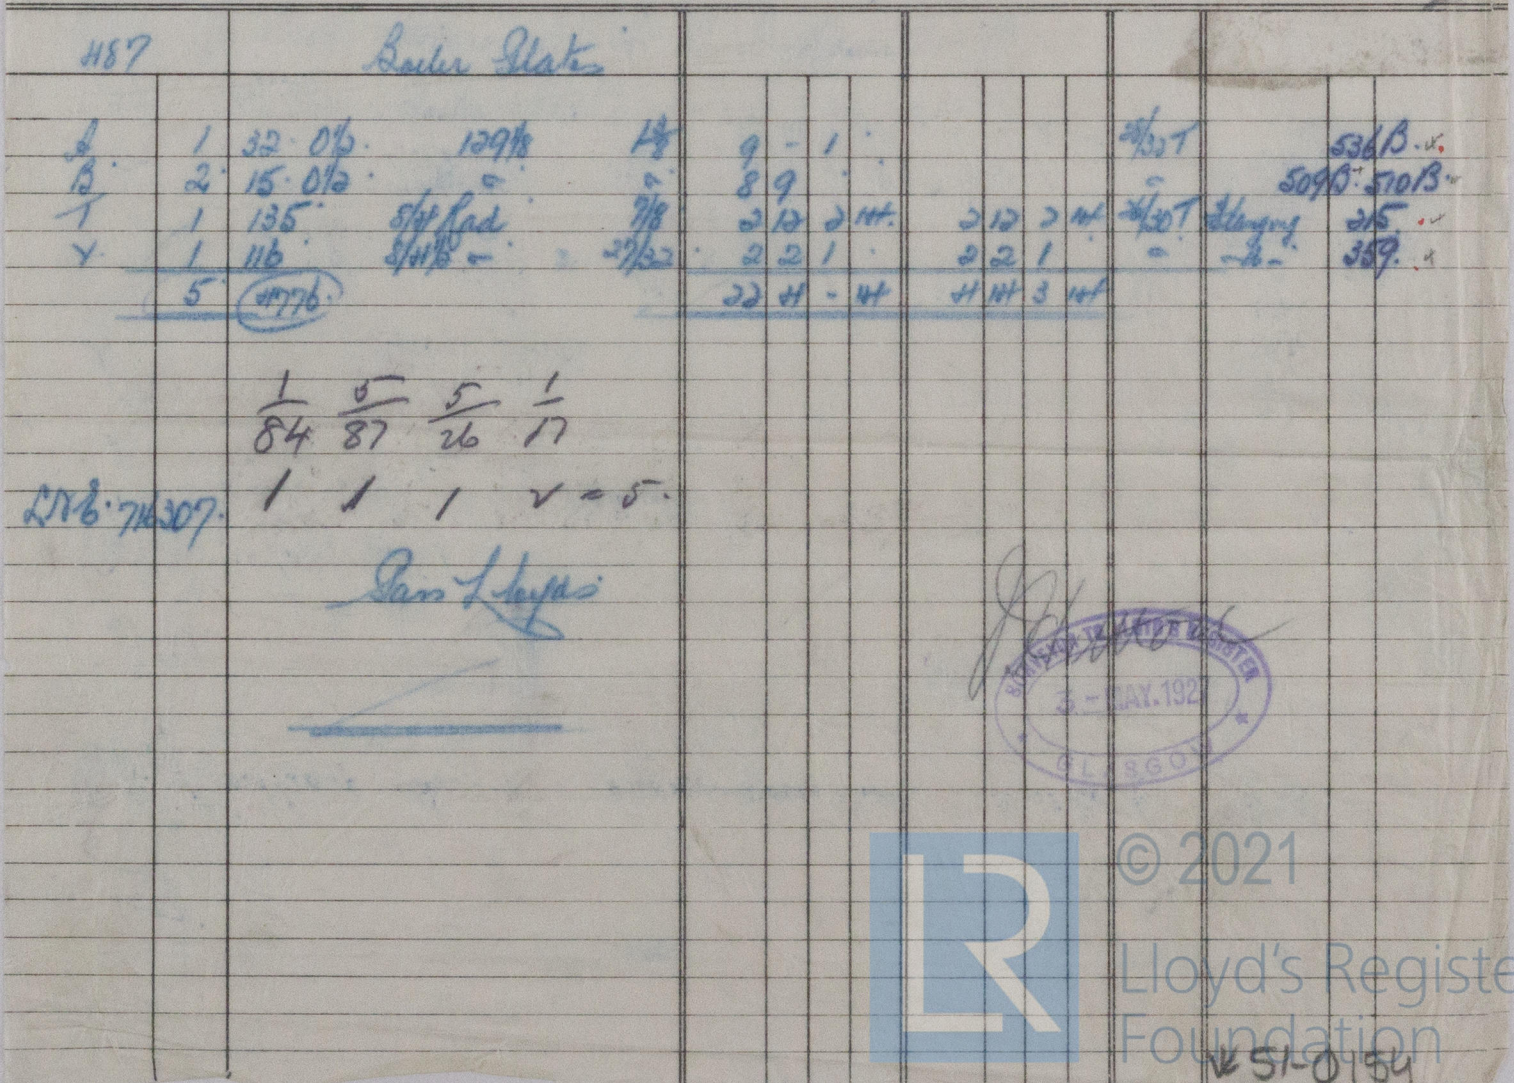 487 Boiler Plates
A 1 32 0½ 129⅛ 9 - 1 28/32T 536B.
B 2 15 0½ " " 8 9 " 509B. 510B.
T 1 135 5/4 Rad 7/8 2 12 2 14 2 12 2 14 26/30T Flanging 215
V 1 116 " 27/32 2 2 1 2 2 1 " -do- 359.
5 4776 22 4 - 14 4 14 3 14
1/84 5/87 5/26 1/17
1 1 1 2 = 5.
307.
Pass Lloyds
SURVEYOR TO LLOYD'S REGISTER
3 - MAY. 192
GLASGOW
LR
© 2021
Lloyd's Registe
Foundation
51-0154